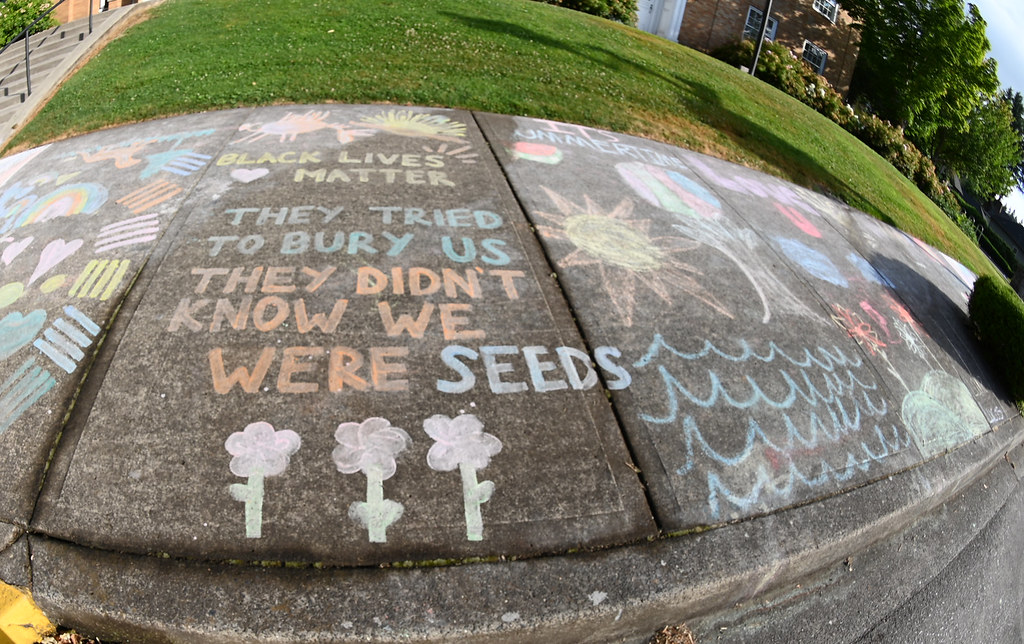 BLACK LIVES
MATTER
THEY TRIED
TO BURY US
THEY DIDN'T
KNOW WE
WERE SEEDS
IT'S
SUMMERTIME